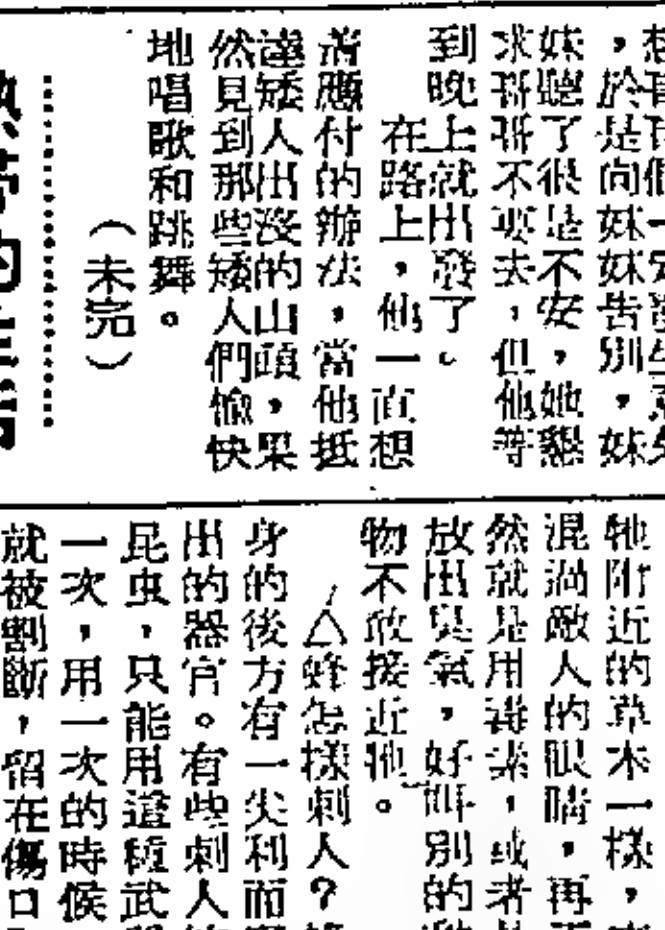 ，於是向妹妹告別，妹
妹聽了很是不安，她懇
求哥哥不要去，但他等
到晚上就出發了。
在路上，他一直想
着應付的辦法，當他抵
達矮人出沒的山頭，果
然見到那些矮人們愉快
地唱歌和跳舞。
（未完）
牠附近的草木一樣，
混淆敵人的眼睛，再
然就是用毒素，或者
放出臭氣，好叫別的
物不敢接近牠。
△蜂怎樣刺人？
身的後方有一尖利而
出的器官。有些刺人
昆虫，只能用這種武
一次，用一次的時候
就被割斷，留在傷口